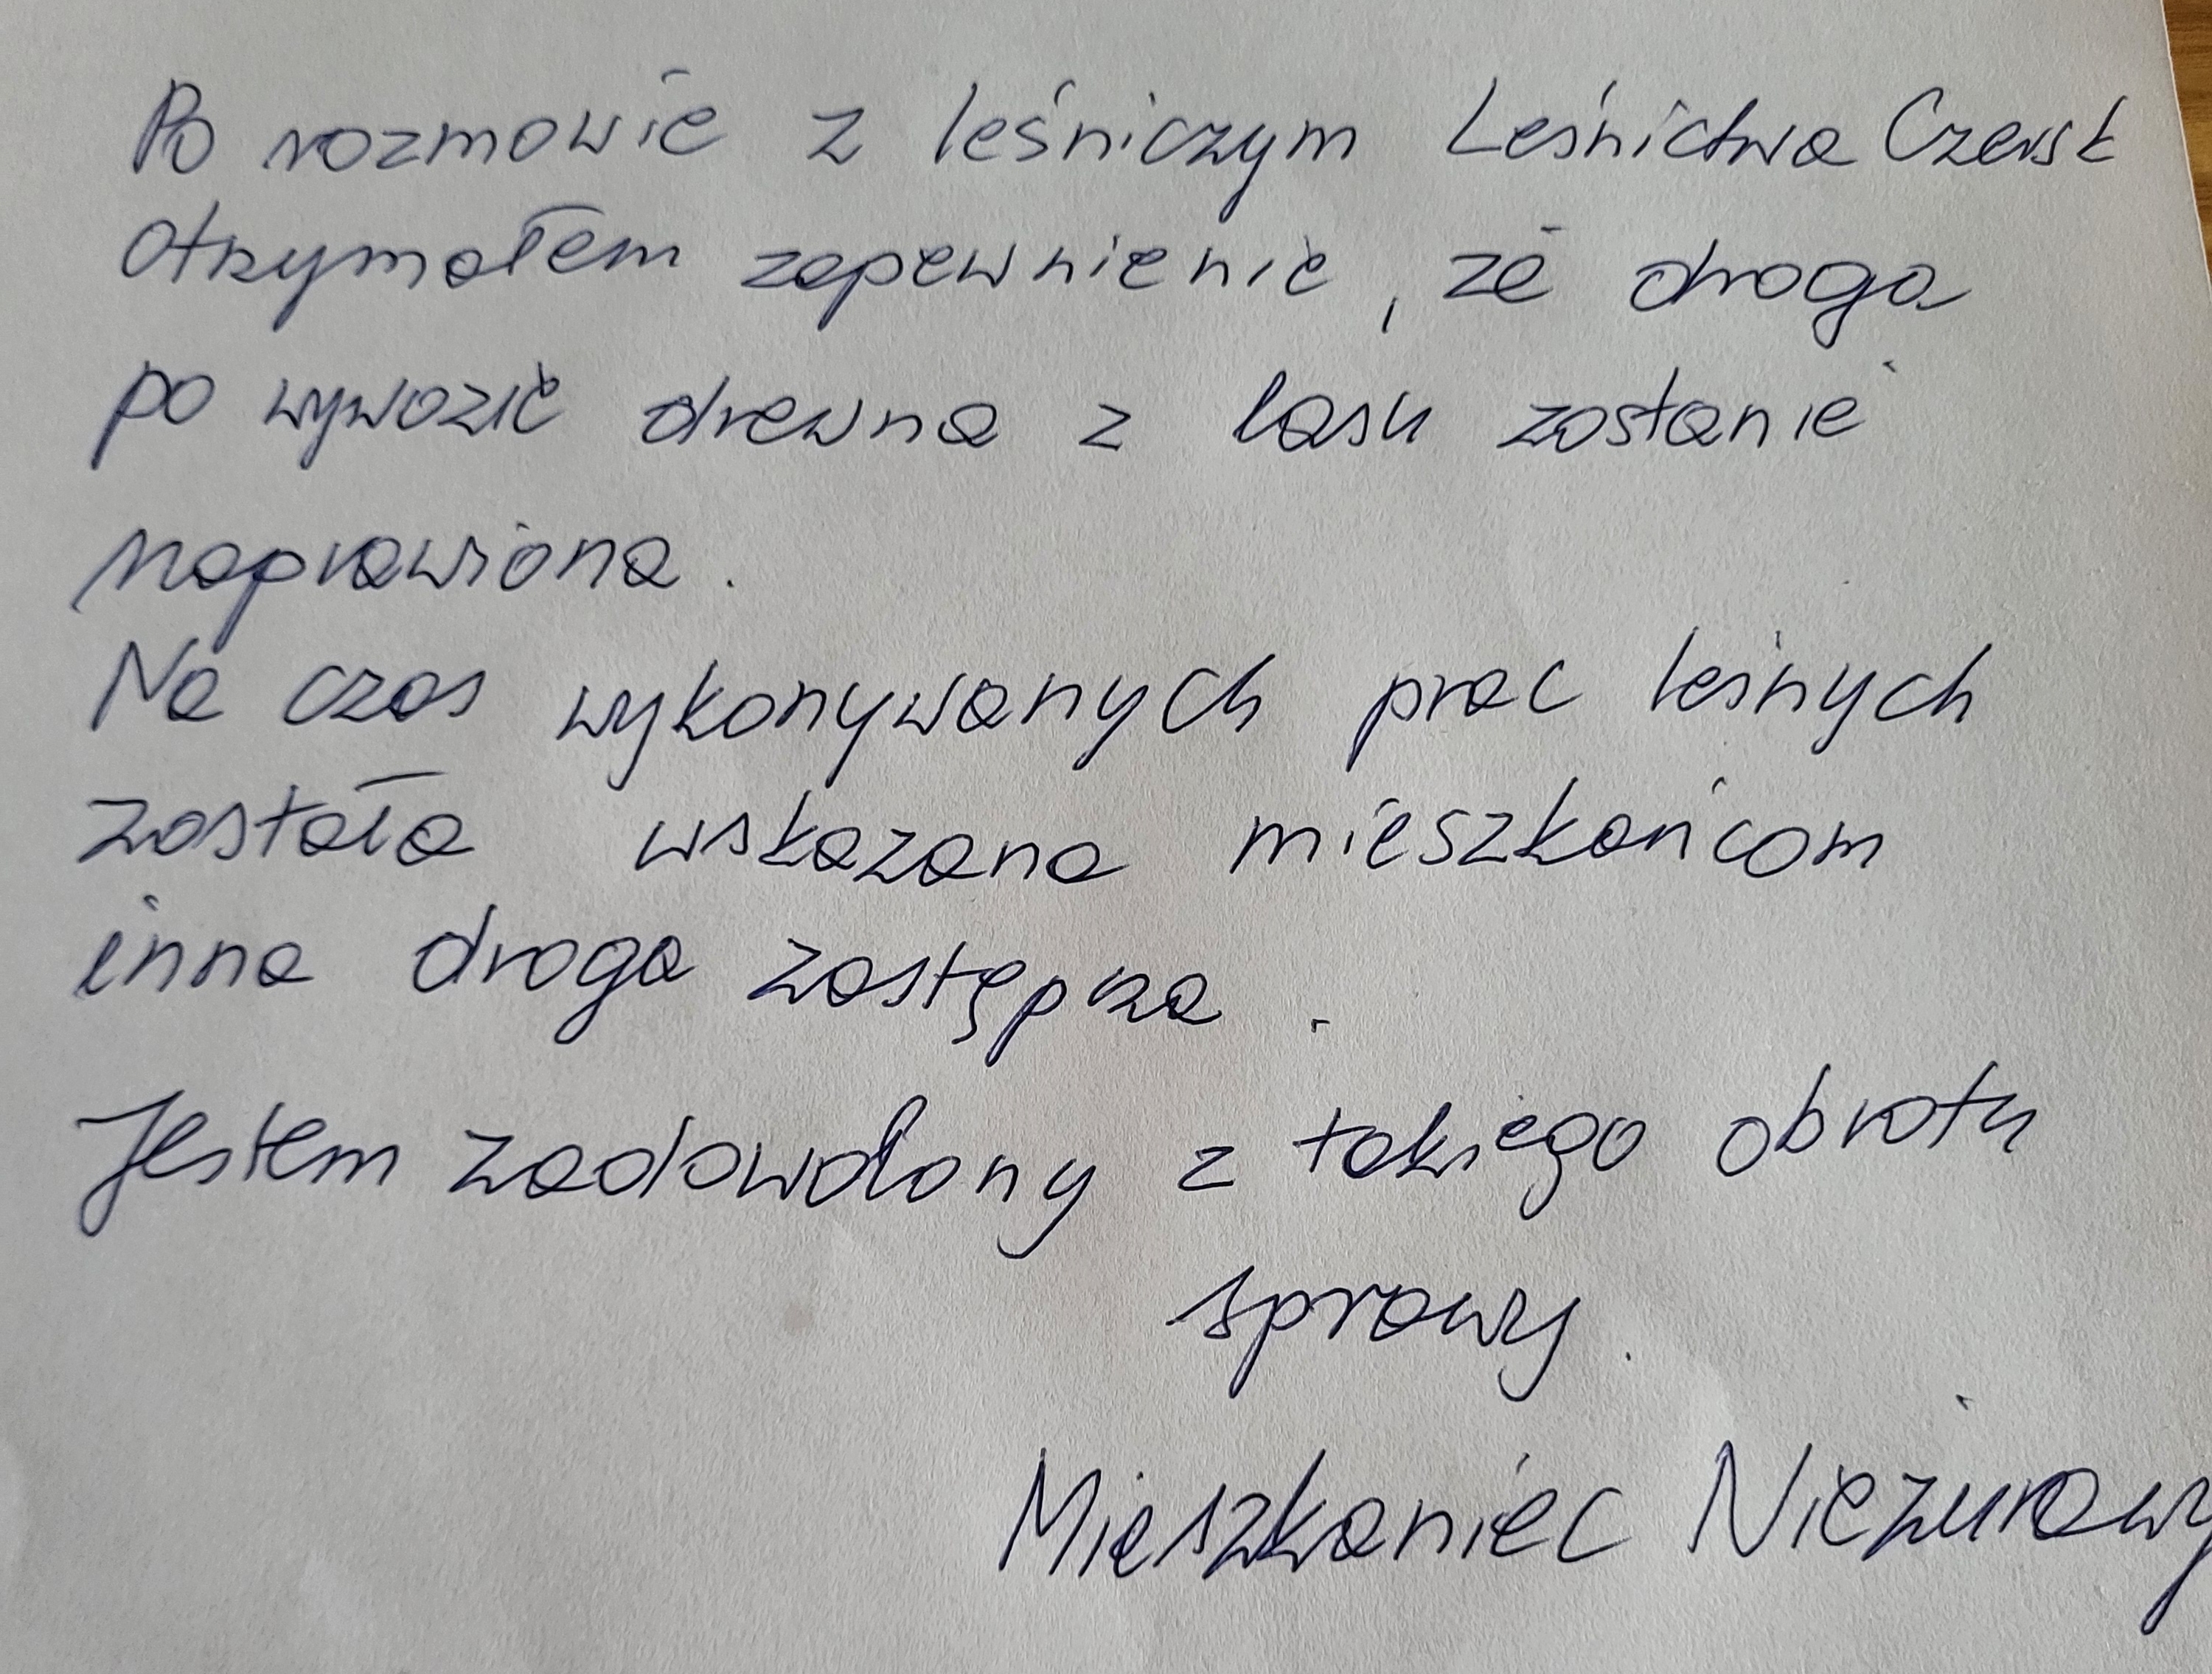 Po rozmowie z leśniczym Leśnictwa Czersk
otrzymałem zapewnienie, że droga
po wywozie drewna z lasu zostanie
naprawiona.
Na czas wykonywanych prac leśnych
została wskazana mieszkańcom
inna droga zastępcza.
Jestem zadowolony z takiego obrotu
sprawy.
Mieszkaniec Nieżurawy